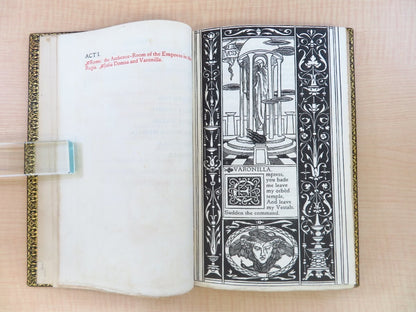 ACT I.
Rome: the Audience-Room of the Empress in the
Julia Domna and Varonilla.
VARONILLA.
Empress,
you bade
me leave
my orbèd
temple,
And leave
my Vestals.
Sudden the command